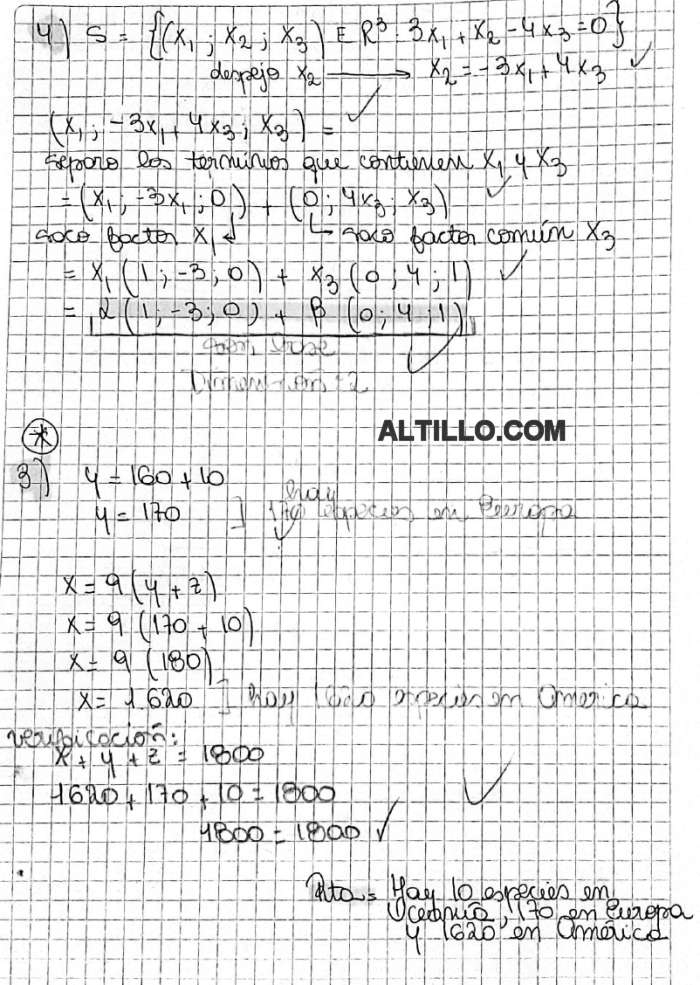 4) S = {(x₁ ; x₂ ; x₃) E R³ : 3x₁ + x₂ - 4x₃ = 0}
despejo x₂ → x₂ = -3x₁ + 4x₃ ✓
(x₁ ; -3x₁ + 4x₃ ; x₃) = ✓
separo los terminos que contienen x₁ y x₃
= (x₁ ; -3x₁ ; 0) + (0 ; 4x₃ ; x₃) ✓
saco factor x₁ ↲ ↳ saco factor común x₃
= x₁ (1 ; -3 ; 0) + x₃ (0 ; 4 ; 1) ✓
= α (1 ; -3 ; 0) + β (0 ; 4 ; 1) ✓
Dimensión : 2
*
ALTILLO.COM
3) y = 160 + 10
y = 170 ] hay 170 especies en Europa
x = 9 (y + z)
x = 9 (170 + 10)
x = 9 (180)
x = 1620 ] hay 1620 especies en America
verificación:
x + y + z = 1800
1620 + 170 + 10 = 1800 ✓
1800 = 1800 ✓
Rta = Hay 10 especies en
Oceanía, 170 en Europa
y 1620 en América